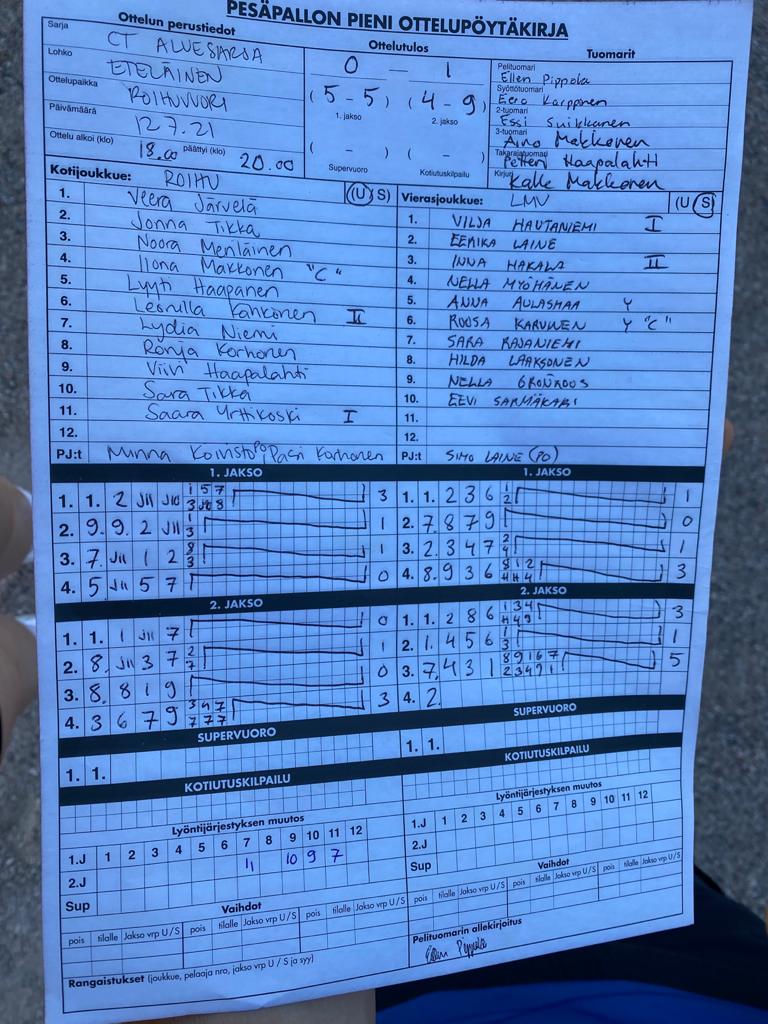 PESÄPALLON PIENI OTTELUPÖYTÄKIRJA
Ottelun perustiedot
Sarja CT ALUESARJA
Lohko ETELÄINEN
Ottelupaikka ROIHUVUORI
Päivämäärä 12.7.21
Ottelu alkoi (klo) 18.00 päättyi (klo) 20.00
Ottelutulos
0 — 1
( 5 - 5 ) ( 4 - 9 )
1. jakso 2. jakso
( - ) ( - )
Supervuoro Kotiutuskilpailu
Tuomarit
Pelituomari Ellen Pippola
Syöttötuomari Eero Karpponen
2-tuomari Essi Suikkanen
3-tuomari Aino Makkonen
Takarajatuomari Petteri Haapalahti
Kirjuri Kalle Makkonen
Kotijoukkue: ROIHU (U S)
1. Veera Järvelä
2. Jonna Tikka
3. Noora Meriläinen
4. Ilona Makkonen "C"
5. Lyyti Haapanen
6. Leonulla Kahkonen II
7. Lydia Niemi
8. Ronja Korhonen
9. Viivi Haapalahti
10. Sara Tikka
11. Saara Yrttikoski I
12.
PJ:t Minna Koivisto PO, Pasi Korhonen
Vierasjoukkue: LMV (U S)
1. VILJA HAUTANIEMI I
2. EERIKA LAINE
3. INNA HAKALA II
4. NELLA MYÖHÄNEN
5. ANNA AULASMAA Y
6. ROOSA KARVINEN Y "C"
7. SARA RAJANIEMI
8. HILDA LAAKSONEN
9. NELLA GRÖNROOS
10. EEVI SARMÄKARI
11.
12.
PJ:t SIMO LAINE (PO)
1. JAKSO
1. 1. 2 JII J10 1 5 7 3
3 J10 8
2. 9. 9 2 JII 1 1
3
3. 7. JII 1 2 8 1
3
4. 5 JII 5 7 0
1. JAKSO
1. 1. 2 3 6 1 1
2
2. 7. 8 7 9 0
3. 2. 3 4 7 2 1
4
4. 8. 9 3 6 8 1 2 3
2. JAKSO
1. 1. 1 JII 7 0
2. 8. JII 3 7 2 1
7
3. 8. 8 1 9 0
4. 3 6 7 9 3 4 7 3
7 7 7
2. JAKSO
1. 1. 2 8 6 1 3 4 3
4 4 9
2. 1. 4 5 6 1 1
3
3. 7. 4 3 1 8 9 1 6 7 5
2 3 4 9 1
4. 2.
SUPERVUORO
1. 1.
KOTIUTUSKILPAILU
SUPERVUORO
1. 1.
KOTIUTUSKILPAILU
Lyöntijärjestyksen muutos
1.J 1 2 3 4 5 6 7 8 9 10 11 12
11 10 9 7
2.J
Sup
Lyöntijärjestyksen muutos
1.J 1 2 3 4 5 6 7 8 9 10 11 12
2.J
Sup
Vaihdot
pois tilalle Jakso vrp U / S pois tilalle Jakso vrp U / S pois tilalle Jakso vrp U / S
Vaihdot
pois tilalle Jakso vrp U / S pois tilalle Jakso vrp U / S pois tilalle Jakso vrp U / S
Rangaistukset (joukkue, pelaaja nro, jakso vrp U / S ja syy)
Pelituomarin allekirjoitus
Ellen Pippola